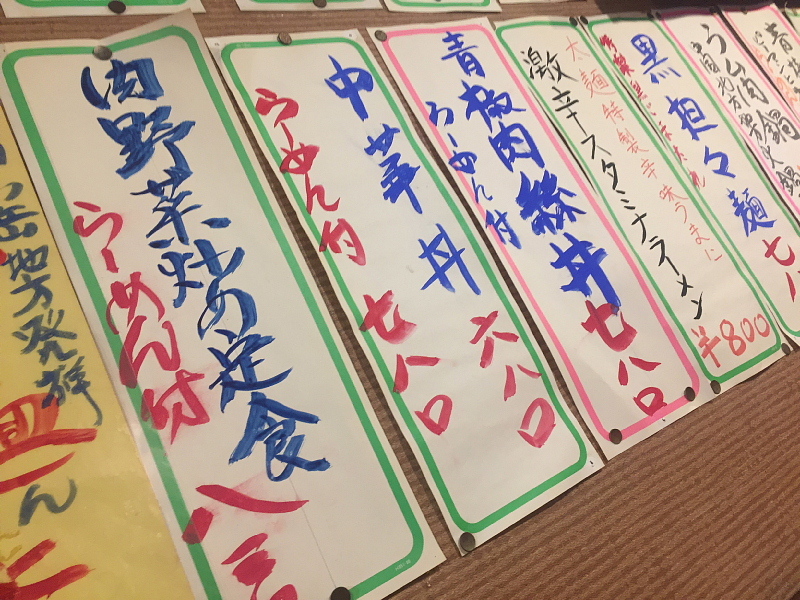 岳地方発祥
ん
肉野菜炒め定食
らーめん付
八三
中華丼
六八〇
らーめん付
七八〇
青椒肉絲丼
らーめん付
七八〇
激辛スタミナラーメン
太麺特製辛味うまに
¥800
黒担々麺
七八